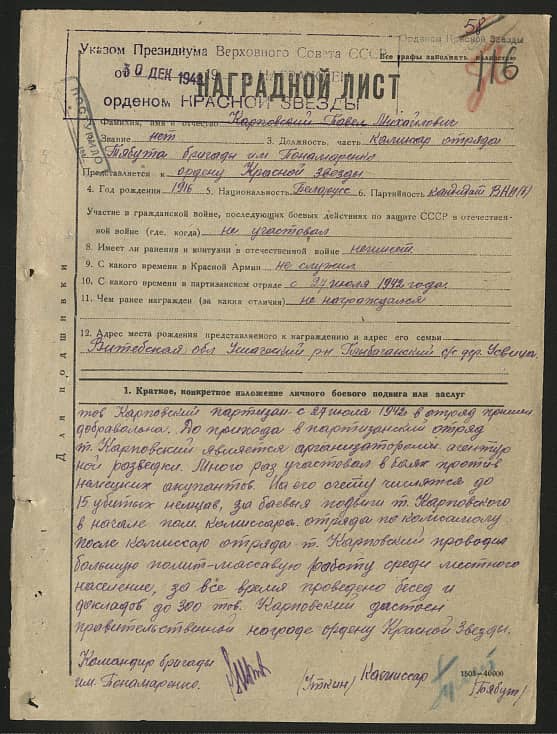 58
Орденом Красной Звезды
Указом Президиума Верховного Совета СССР
Все графы заполнять полностью
от 30 ДЕК 1948
116
НАГРАДНОЙ ЛИСТ
орденом КРАСНОЙ ЗВЕЗДЫ
ПОСТУПИЛО
Фамилия, имя и отчество Карповский Павел Михайлович
Звание нет 3. Должность, часть комиссар отряда
Тябута бригады им Пономаренко
Представляется к ордену Красной Звезды
4. Год рождения 1916 5. Национальность Белорусс 6. Партийность кандидат ВКП(б)
Участие в гражданской войне, последующих боевых действиях по защите СССР в отечествен-
ной войне (где, когда) не участвовал
8. Имеет ли ранения и контузии в отечественной войне неимеет
9. С какого времени в Красной Армии не служил
10. С какого времени в партизанском отряде с 27 июля 1942 года
11. Чем ранее награжден (за какия отличия) не награждался
12. Адрес места рождения представляемого к награждению и адрес его семьи
Витебская обл Ушачский рн с/с дер. Усвица
Для подшивки
1. Краткое, конкретное изложение личного боевого подвига или заслуг
тов Карповский партизан с 27 июля 1942 в отряд пришел
добравольна. До прихода в партизанский отряд
т. Карповский является организатором агентур
ной разведки. Много раз участвовал в боях против
немецких акупантов. На его счету числятся до
15 убитых немцав, за боевыя подвиги т. Карповского
в начале пом. комиссара отряда по комсамолу
после комиссар отряда т. Карповский проводил
большую полит-массавую работу среди местного
население, за все время проведено бесед и
докладов до 300 тов. Карповский достоен
правительственной награде ордену Красной Звезды.
Командир бригады
им. Пономаренко. (Уткин) Камиссар (Тябут)
1503-40000